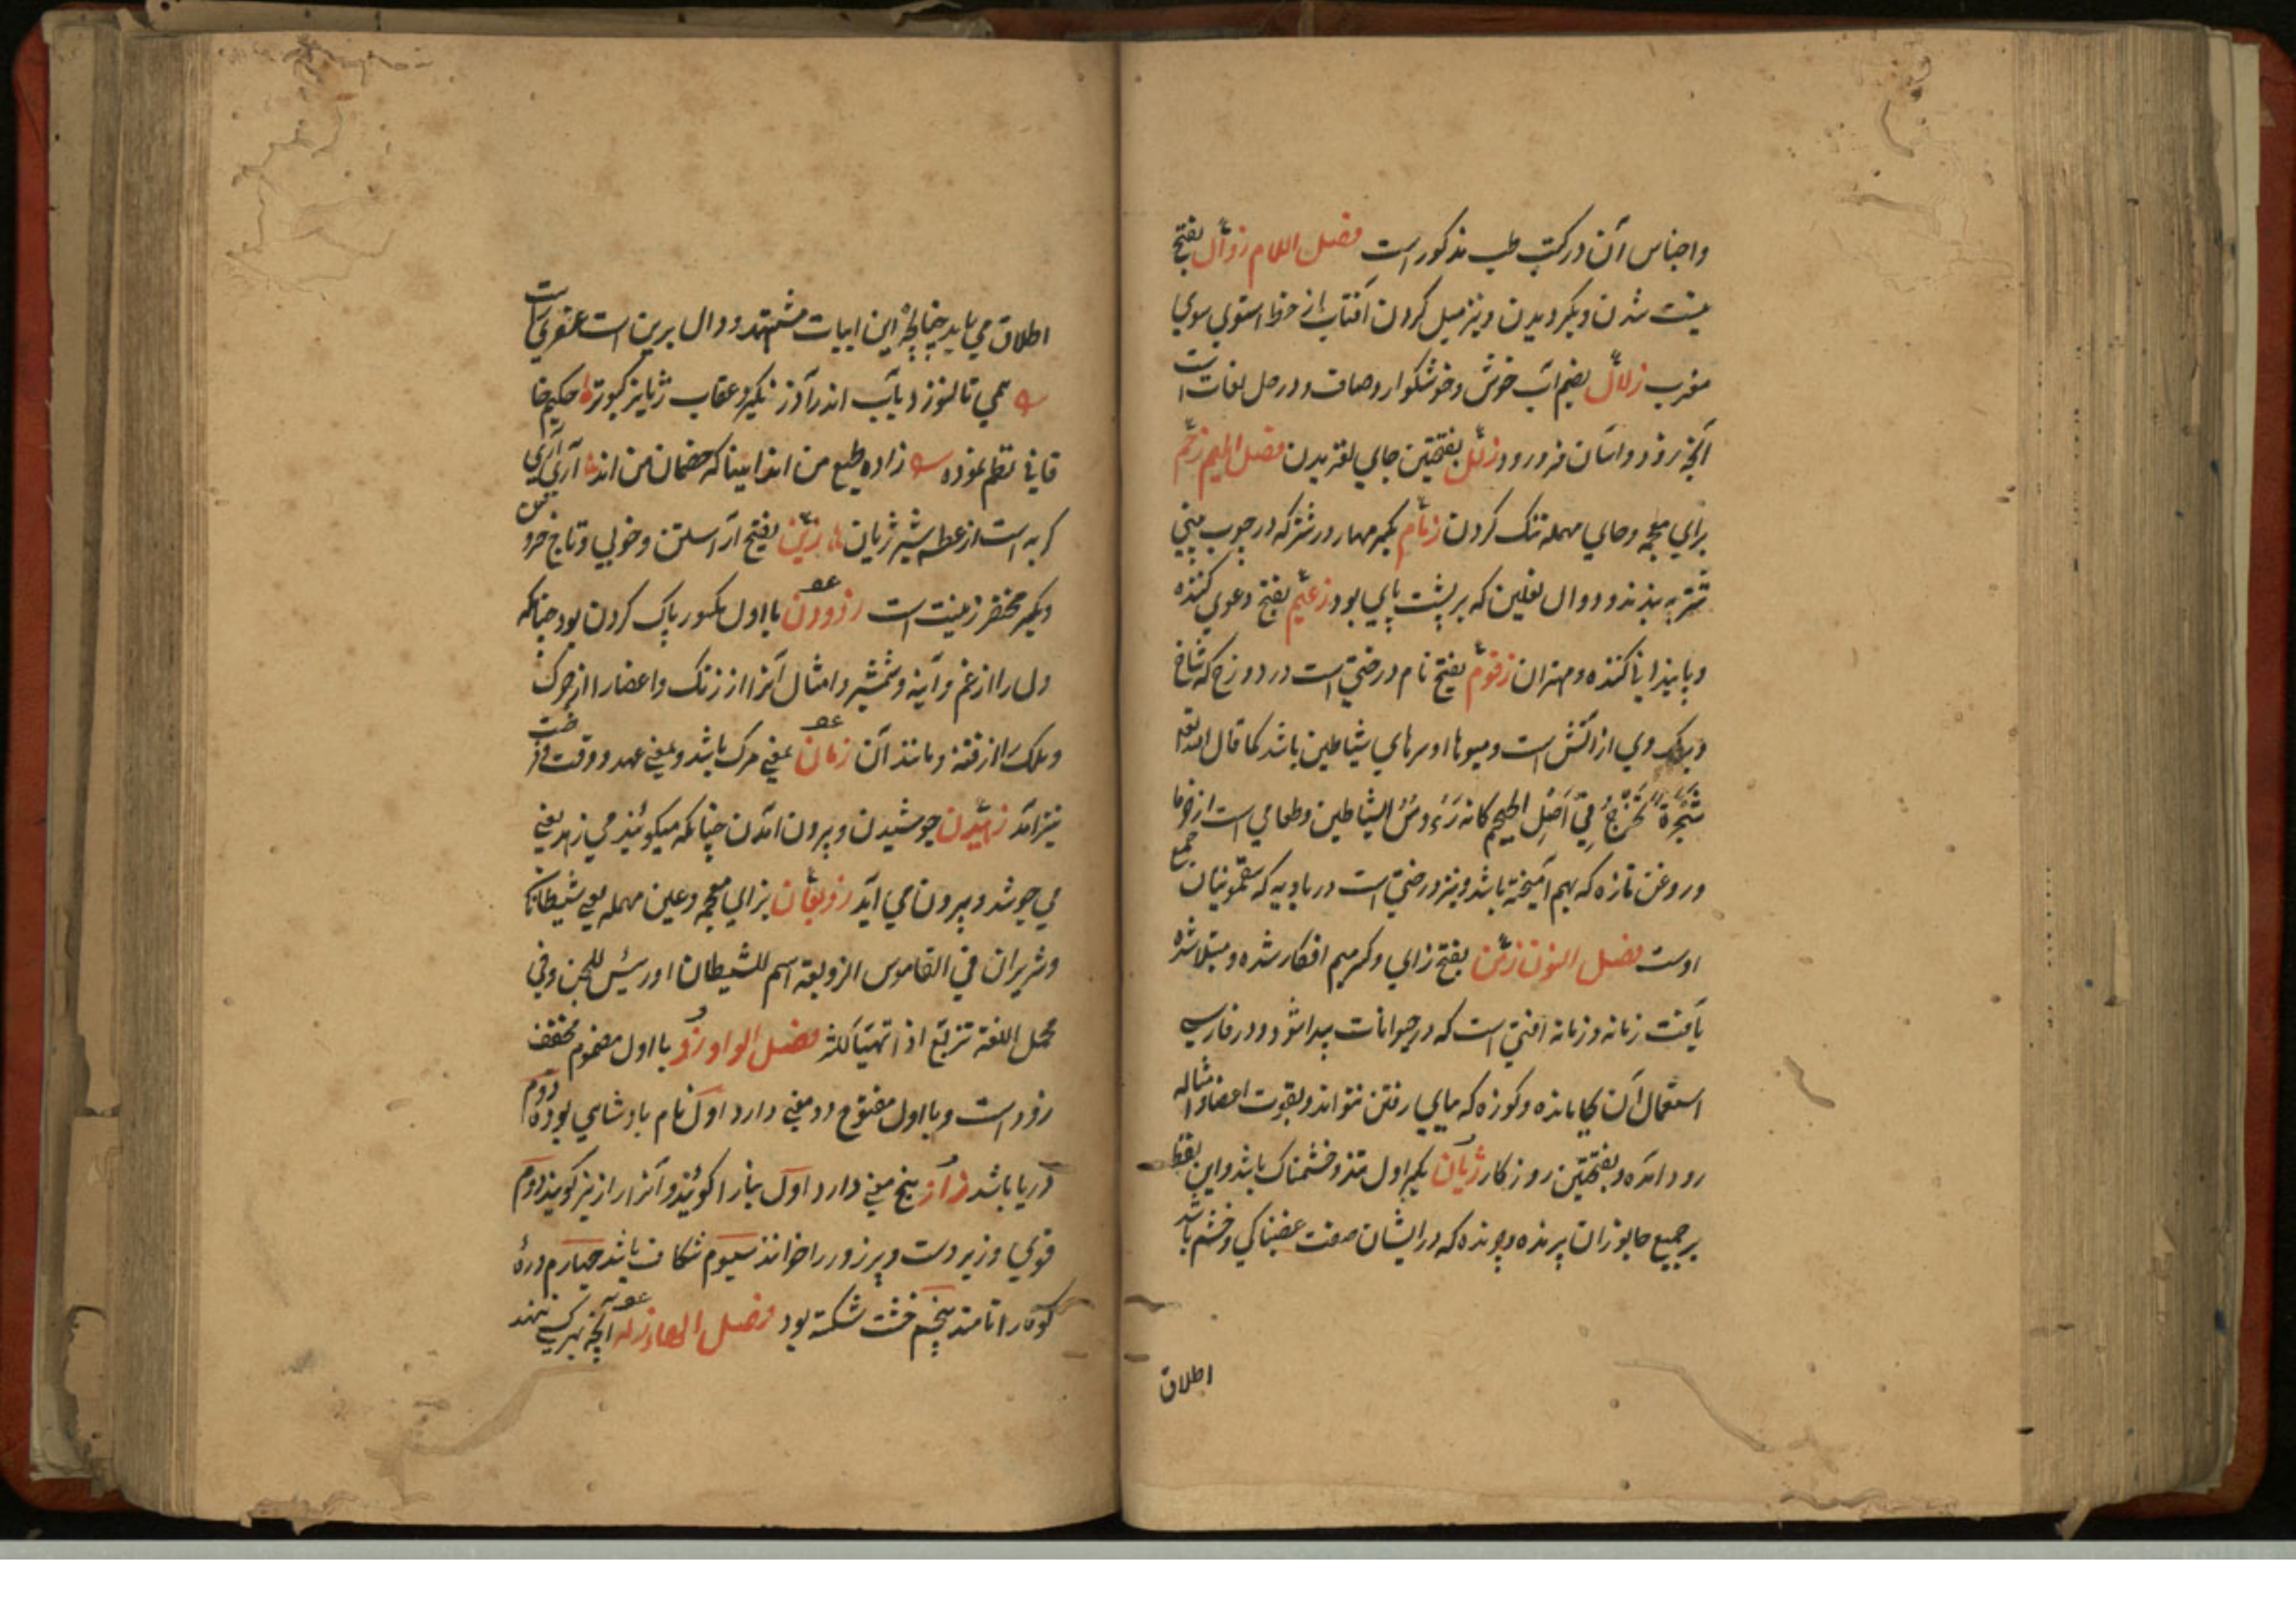 واجناس آن در کتب طب مذکور است فصل اللام زوال بفتح
نیست شدن و بکردیدن و نیز میل کردن آفتاب از خط استوی سوی
مغرب زلال بضم آب خوش و خوشکوار و صاف و در حل لغات است
آنچه زود و آسان فرو رود زلل بفتحتین جای لغزیدن فصل المیم زحم
برای معجمه و حای مهمله تنک کردن زمام بکسر مهار و رشته که در چوب بینی
شتر به بندند و دوال نعلین که بر پشت پای بود زعیم بفتح دعوی کننده
و پایندانی کننده و مهتران زقوم بفتح نام درختی است در دوزخ که شاخ
و برک وی از آتش است و میوها او سرهای شیاطین باشد کما قال الله تعه
شجرة تخرج فی اصل الجحیم کانه رءوس الشیاطین و طعامی است از خرما
و روغن تازه که بهم آمیخته باشد و نیز درختی است در بادیه که سقمونیا صمغ
اوست فصل النون زمن بفتح زای و کسر میم افکار شده و مبتلا شده
بآفت زمانه و زمانه آفتی است که در حیوانات پیدا شود و در فارسی
استعمال آن بجا مانده و کوزه که بپای رفتن نتواند و بقوت اعضا و امثاله
رود آمده و بفتحتین روزکار ژیان بکسر اول تند و خشمناک باشد و این لفظ
بر جمیع جانوران پرنده و چرنده که در ایشان صفت غضبناکی و خشم باشد
اطلاق
اطلاق می یابد چنانچه این ابیات مشهد و دال برین است عنصری راست
همی تا کنوز دیاب اندر آذر نکیرد عقاب ژیان کبوتر حکیم خا
قانی نظم نموده زاده طبع من اند اینها که خصمان من اند آری آری
کربه است از عطسه شیر ژیان زین بفتح آراستن و خوبی و تاج خروس
و بکسر مخفر زینت است زدودن با اول مکسور پاک کردن بود چنانکه
دل را از غم و آینه و شمشیر و امثال آنرا از زنک و اعضا را از چرک
و ملک را از فتنه و مانند آن زمان بمعنی مرک باشد و بمعنی عهد و وقت و فرصت
نیز آمد زهیدن جوشیدن و برون آمدن چنانکه میکویند می زهد یعنی
می جوشد و بیرون می آید زوبعان بزای معجمه و عین مهمله یعنی شیطانان
و شریران فی القاموس الزوبعة اسم للشیطان او رئیس للجن و فی
مجمل اللغة تزبع اذا تهیا للشر فصل الواو زو با اول مضموم مخفف
زود است و با اول مفتوح دو معنی دارد اول نام بادشاهی بوده دوم
دریا باشد زاو پنج معنی دارد اول بنا را کویند و آنرا راز نیز کویند دوم
قوی و زبردست و پرزور را خوانند سیوم شکاف باشد چهارم درهٔ
کوه را نامند پنجم خشت شکسته بود فصل الهاء زله آنچه بهر کسی نهند